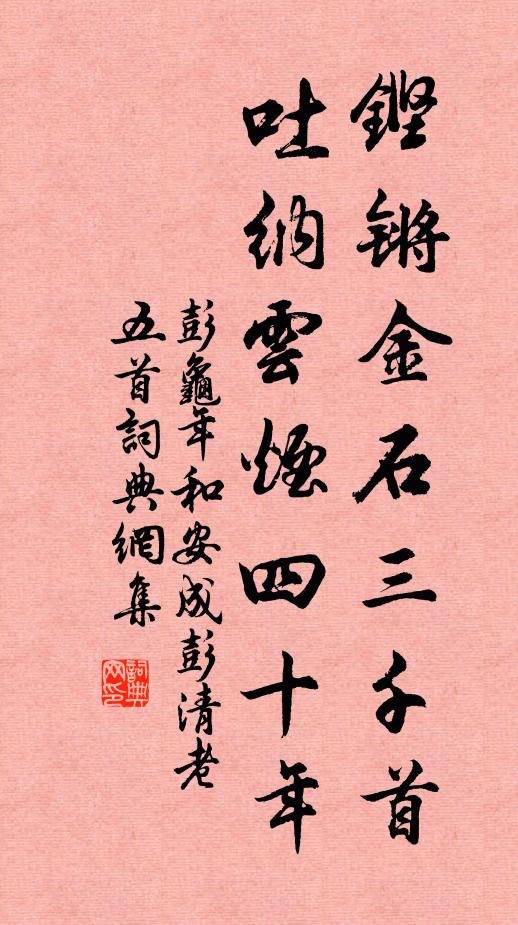 鏗锵金石三千首
吐纳雲煙四十年
彭龜年和安成彭清老
五首詞典網集
詞典
网印